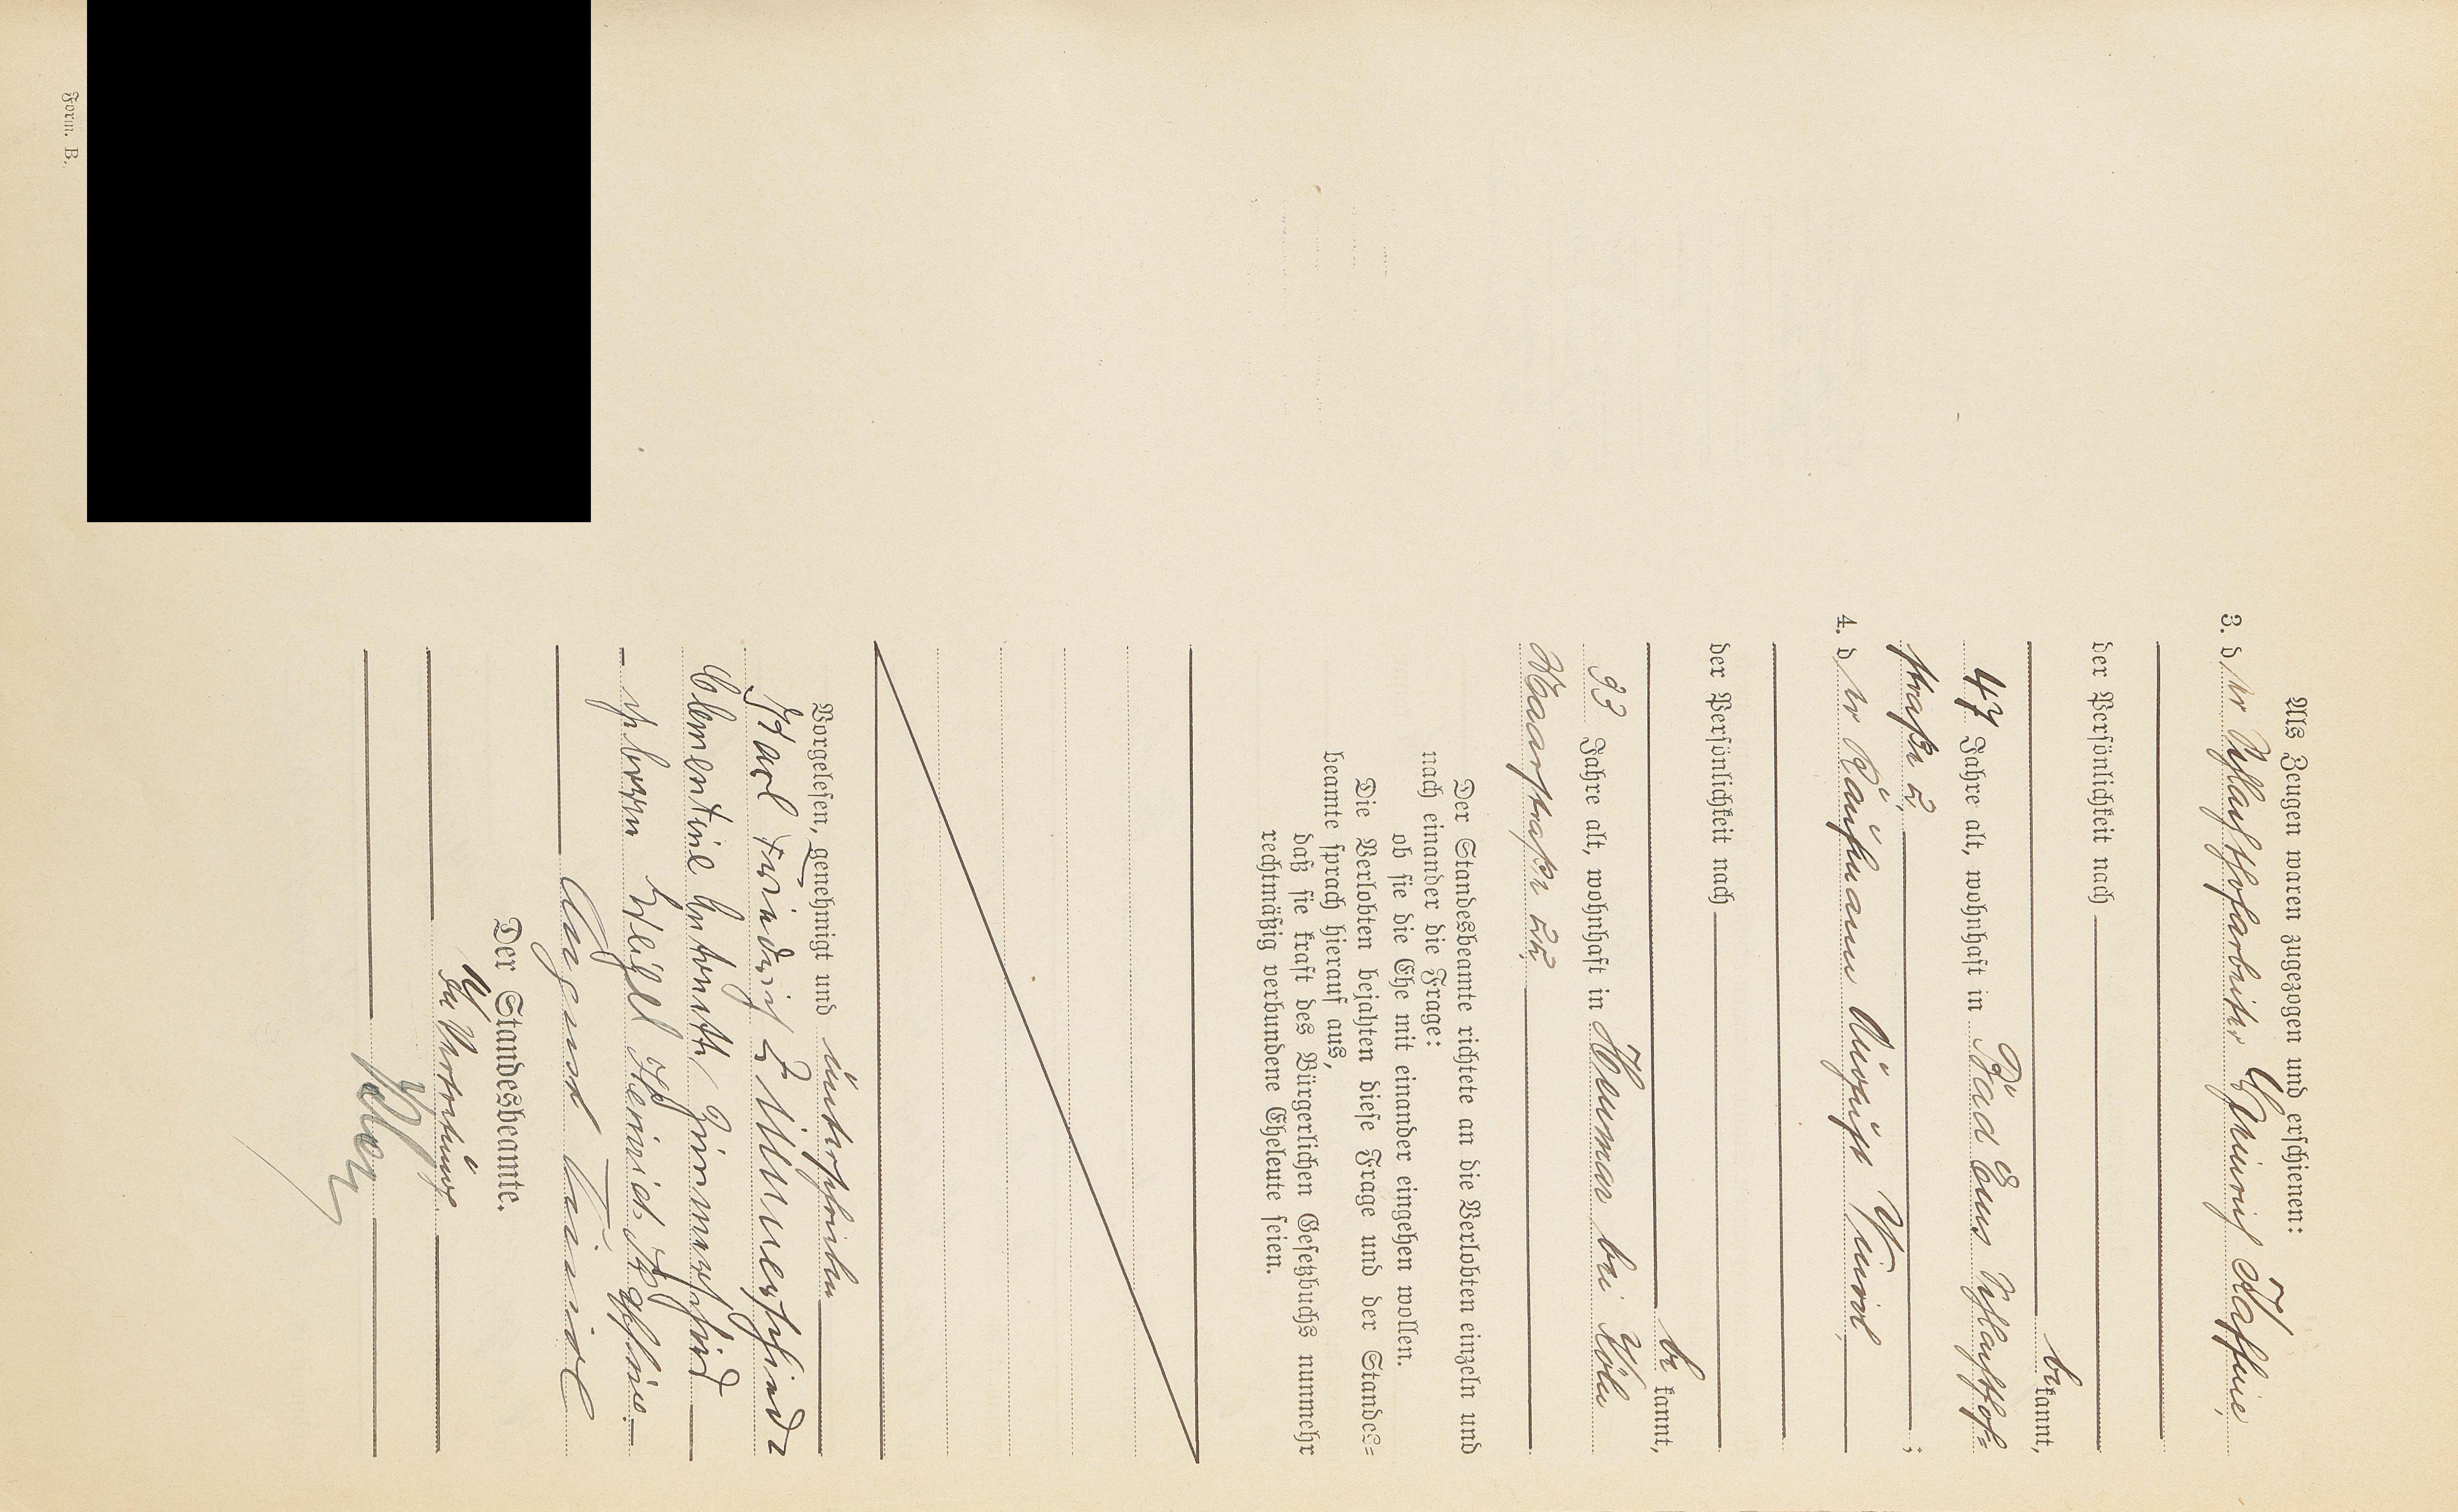 Als Zeugen waren zugezogen und erschienen:
3. d er Schlachthofarbeiter Heinrich
der Persönlichkeit nach
be kannt,
47 Jahre alt, wohnhaft in Bad Ems Schlachthof=
straße 2 ;
4. d er Kaufmann August
der Persönlichkeit nach
be kannt,
33 Jahre alt, wohnhaft in Heumar bei Köln
straße 22.
Der Standesbeamte richtete an die Verlobten einzeln und
nach einander die Frage:
ob sie die Ehe mit einander eingehen wollen.
Die Verlobten bejahten diese Frage und der Standes=
beamte sprach hierauf aus,
daß sie kraft des Bürgerlichen Gesetzbuchs nunmehr
rechtmäßig verbundene Eheleute seien.
Vorgelesen, genehmigt und unterschrieben
Karl Friedrich Zimmerschied
Clementine Zimmerschied
geborene Heinrich
August
Der Standesbeamte.
In Vertretung.
Form. B.